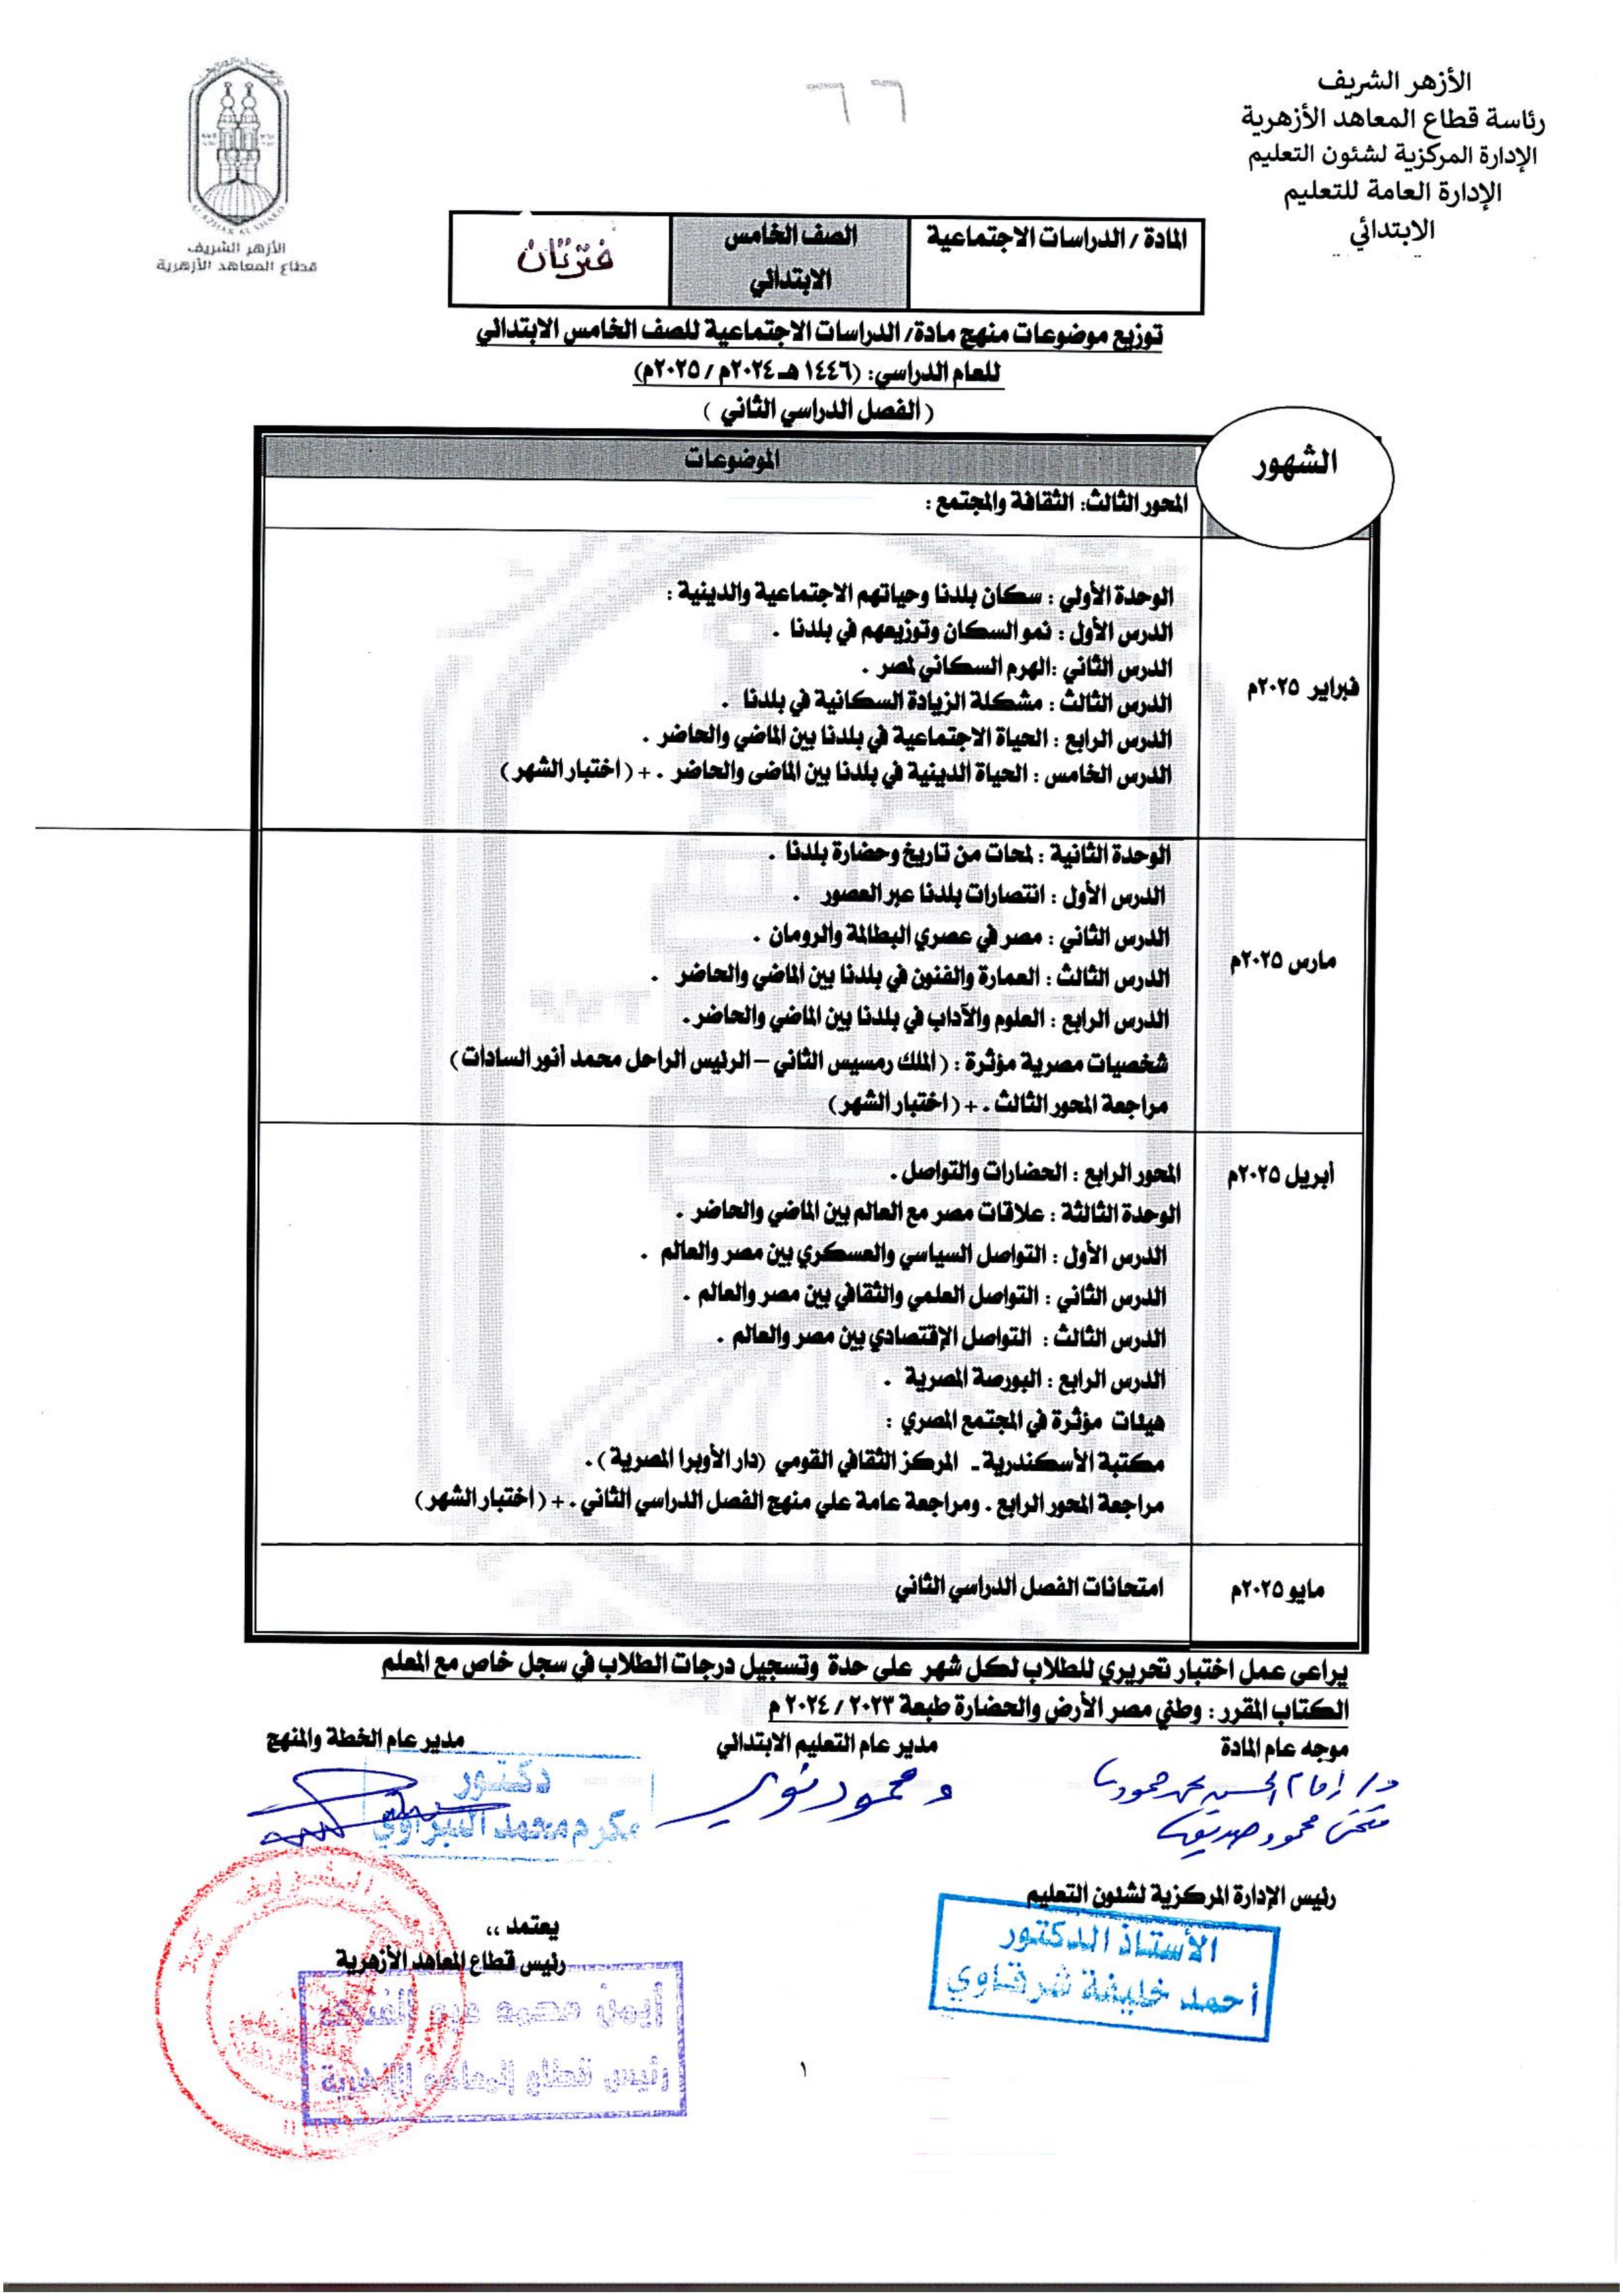 الأزهر الشريف
رئاسة قطاع المعاهد الأزهرية
الإدارة المركزية لشئون التعليم
الإدارة العامة للتعليم
الابتدائي
٦٦
الأزهر الشريف
قطاع المعاهد الأزهرية
المادة / الدراسات الاجتماعية
الصف الخامس
الابتدائي
فترتان
توزيع موضوعات منهج مادة/ الدراسات الاجتماعية للصف الخامس الابتدائي
للعام الدراسي: (١٤٤٦ هـ ٢٠٢٤م / ٢٠٢٥م)
( الفصل الدراسي الثاني )
الشهور
الموضوعات
المحور الثالث: الثقافة والمجتمع :
فبراير ٢٠٢٥م
الوحدة الأولي : سكان بلدنا وحياتهم الاجتماعية والدينية :
الدرس الأول : نمو السكان وتوزيعهم في بلدنا .
الدرس الثاني :الهرم السكاني لمصر .
الدرس الثالث : مشكلة الزيادة السكانية في بلدنا .
الدرس الرابع : الحياة الاجتماعية في بلدنا بين الماضي والحاضر .
الدرس الخامس : الحياة الدينية في بلدنا بين الماضى والحاضر . + ( اختبار الشهر )
مارس ٢٠٢٥م
الوحدة الثانية : لمحات من تاريخ وحضارة بلدنا .
الدرس الأول : انتصارات بلدنا عبر العصور .
الدرس الثاني : مصر في عصري البطالمة والرومان .
الدرس الثالث : العمارة والفنون في بلدنا بين الماضي والحاضر .
الدرس الرابع : العلوم والآداب في بلدنا بين الماضي والحاضر.
شخصيات مصرية مؤثرة : ( الملك رمسيس الثاني – الرئيس الراحل محمد أنور السادات )
مراجعة المحور الثالث . + ( اختبار الشهر)
أبريل ٢٠٢٥م
المحور الرابع : الحضارات والتواصل .
الوحدة الثالثة : علاقات مصر مع العالم بين الماضي والحاضر .
الدرس الأول : التواصل السياسي والعسكري بين مصر والعالم .
الدرس الثاني : التواصل العلمي والثقافي بين مصر والعالم .
الدرس الثالث : التواصل الإقتصادي بين مصر والعالم .
الدرس الرابع : البورصة المصرية .
هيئات مؤثرة في المجتمع المصري :
مكتبة الأسكندرية - المركز الثقافي القومي (دار الأوبرا المصرية ) .
مراجعة المحور الرابع . ومراجعة عامة علي منهج الفصل الدراسي الثاني . + ( اختبار الشهر)
مايو ٢٠٢٥م
امتحانات الفصل الدراسي الثاني
يراعى عمل اختبار تحريري للطلاب لكل شهر على حدة وتسجيل درجات الطلاب في سجل خاص مع المعلم
الكتاب المقرر : وطني مصر الأرض والحضارة طبعة ٢٠٢٣ / ٢٠٢٤ م
موجه عام المادة
مدير عام التعليم الابتدائي
مدير عام الخطة والمنهج
دكتور
مكرم محمد
رئيس الإدارة المركزية لشئون التعليم
الأستاذ الدكتور
أحمد خليفة شرقاوي
يعتمد ،،
رئيس قطاع المعاهد الأزهرية
أيمن محمد عبد الغني
رئيس قطاع المعاهد الأزهرية
١